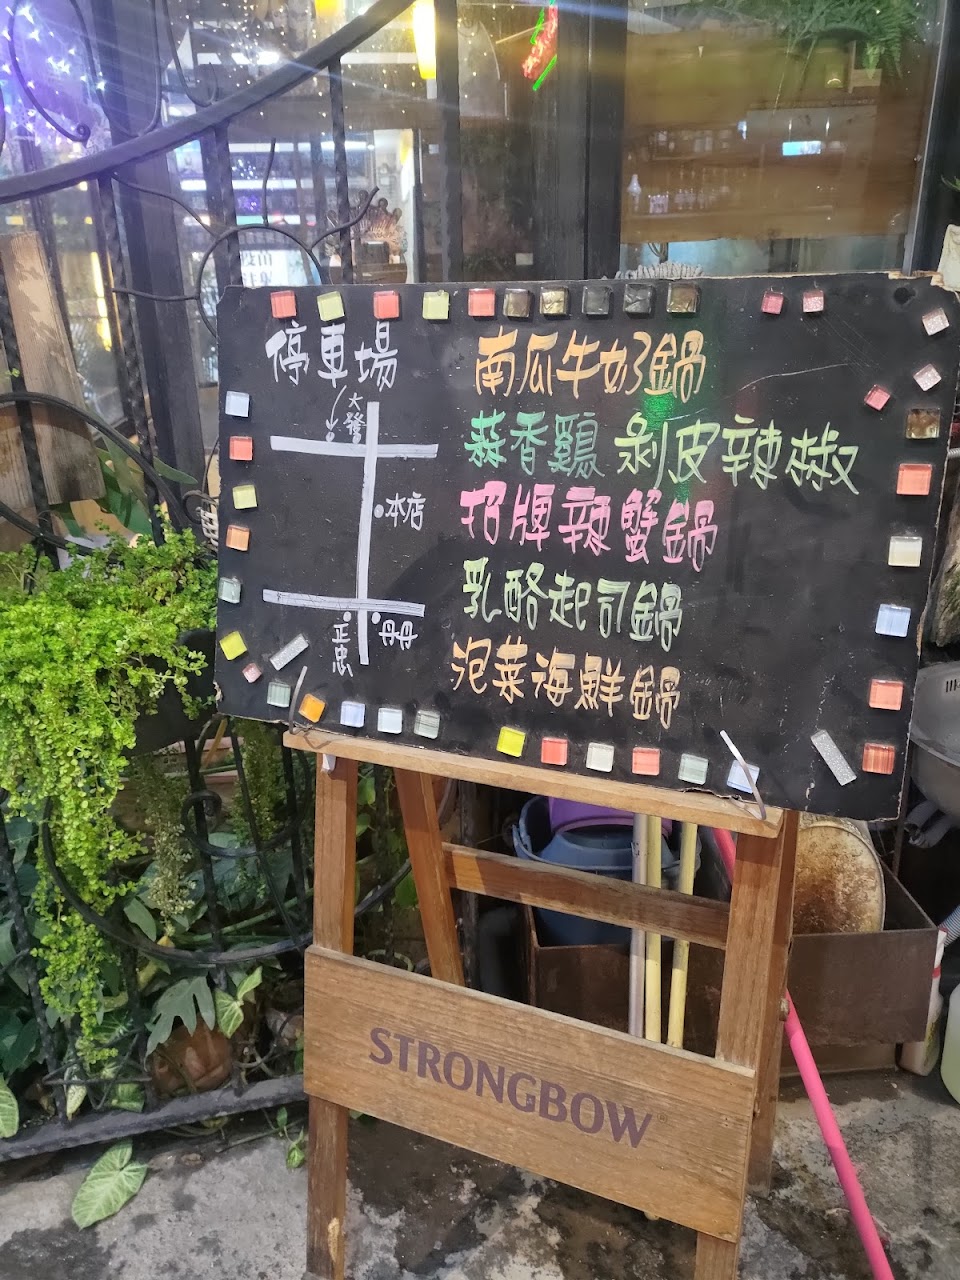 停車場
大發
本店
正忠
丹丹
南瓜牛奶鍋
蒜香雞 剝皮辣椒
招牌辣蟹鍋
乳酪起司鍋
泡菜海鮮鍋
STRONGBOW